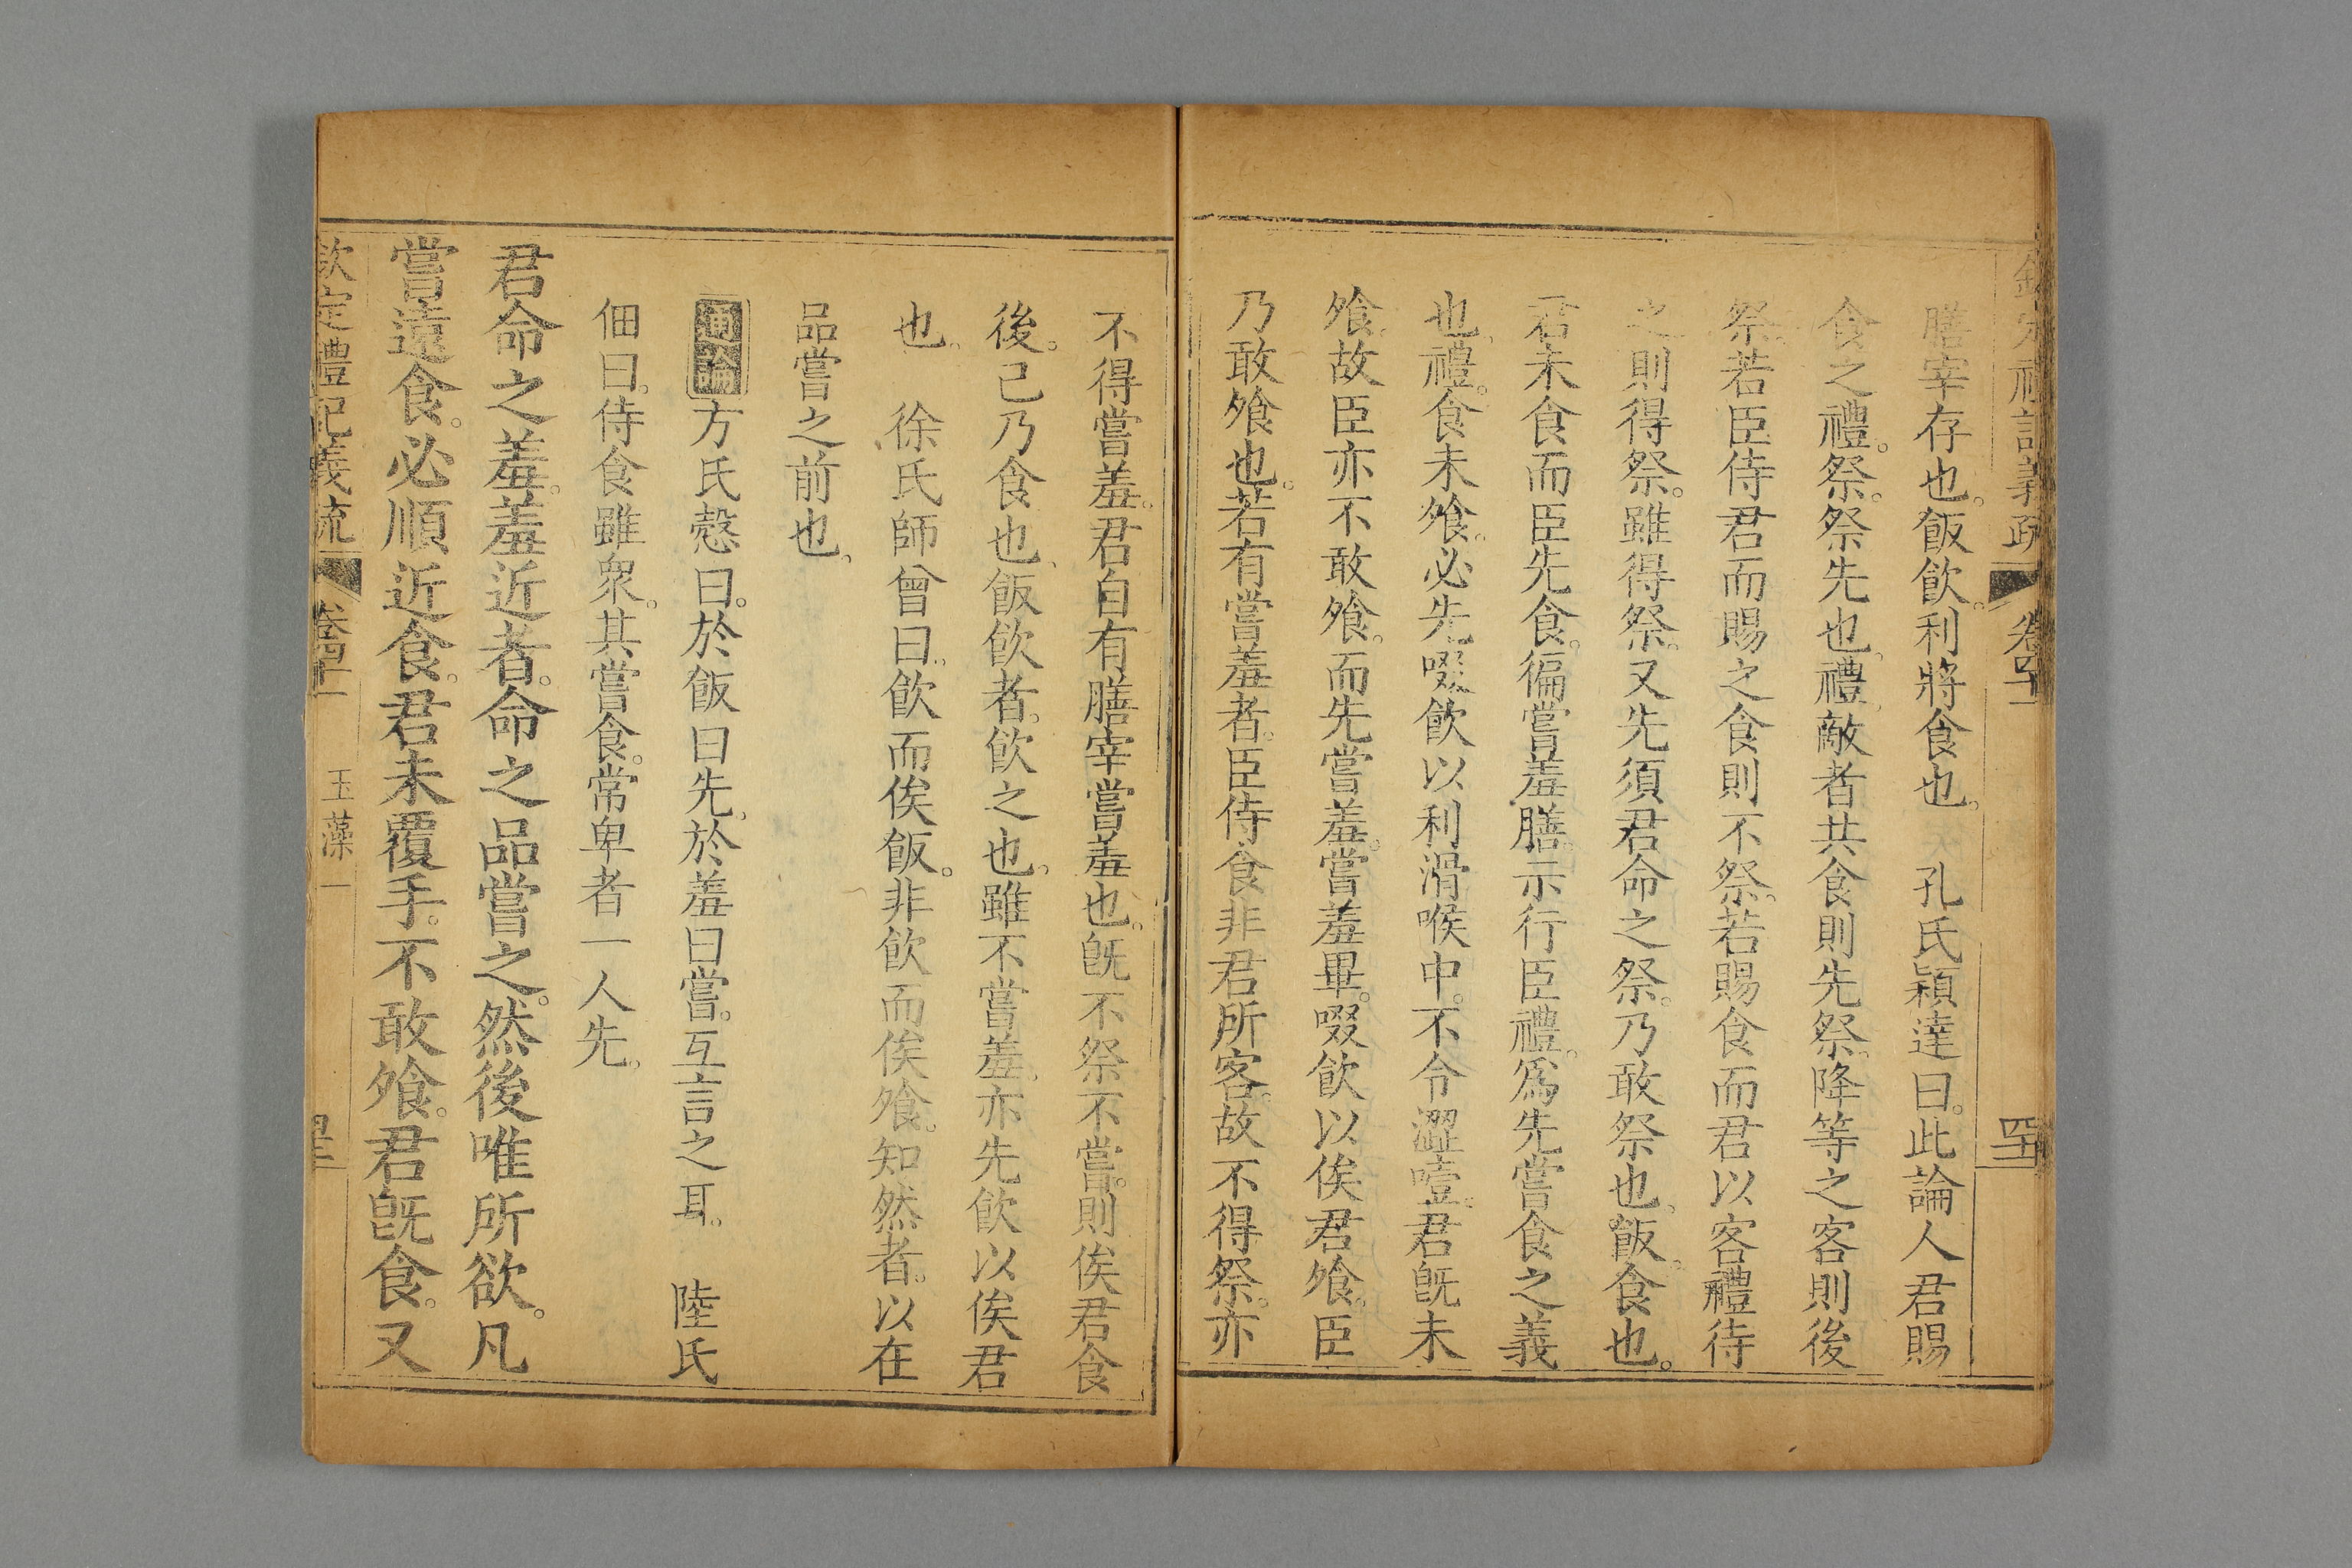 欽定禮記義疏 卷四十一
膳宰存也。飯飲。利將食也。 孔氏穎達曰。此論人君賜
食之禮。祭。祭先也。禮。敵者共食則先祭。降等之客則後
祭。若臣侍君而賜之食則不祭。若賜食而君以客禮待
之則得祭。雖得祭。又先須君命之祭。乃敢祭也。飯。食也。
君未食而臣先食。徧嘗羞膳。示行臣禮。為先嘗食之義
也。禮。食未飧。必先啜飲以利滑喉中。不令澀噎。君旣未
飧。故臣亦不敢飧。而先嘗羞。嘗羞畢。啜飲以俟君飧。臣
乃敢飧也。若有嘗羞者。臣侍食非君所客。故不得祭。亦
不得嘗羞。君自有膳宰嘗羞也。旣不祭不嘗。則俟君食
後。己乃食也。飯飲者。飲之也。雖不嘗羞。亦先飲以俟君
也。 徐氏師曾曰。飲而俟飯。非飲而俟飧。知然者。以在
品嘗之前也。
通論方氏慤曰。於飯曰先。於羞曰嘗。互言之耳。 陸氏
佃曰。侍食雖衆。其嘗食。常卑者一人先。
君命之羞。羞近者。命之品嘗之。然後唯所欲。凡
嘗遠食。必順近食。君未覆手。不敢飧。君旣食。又
欽定禮記義疏 卷四十一 玉藻一